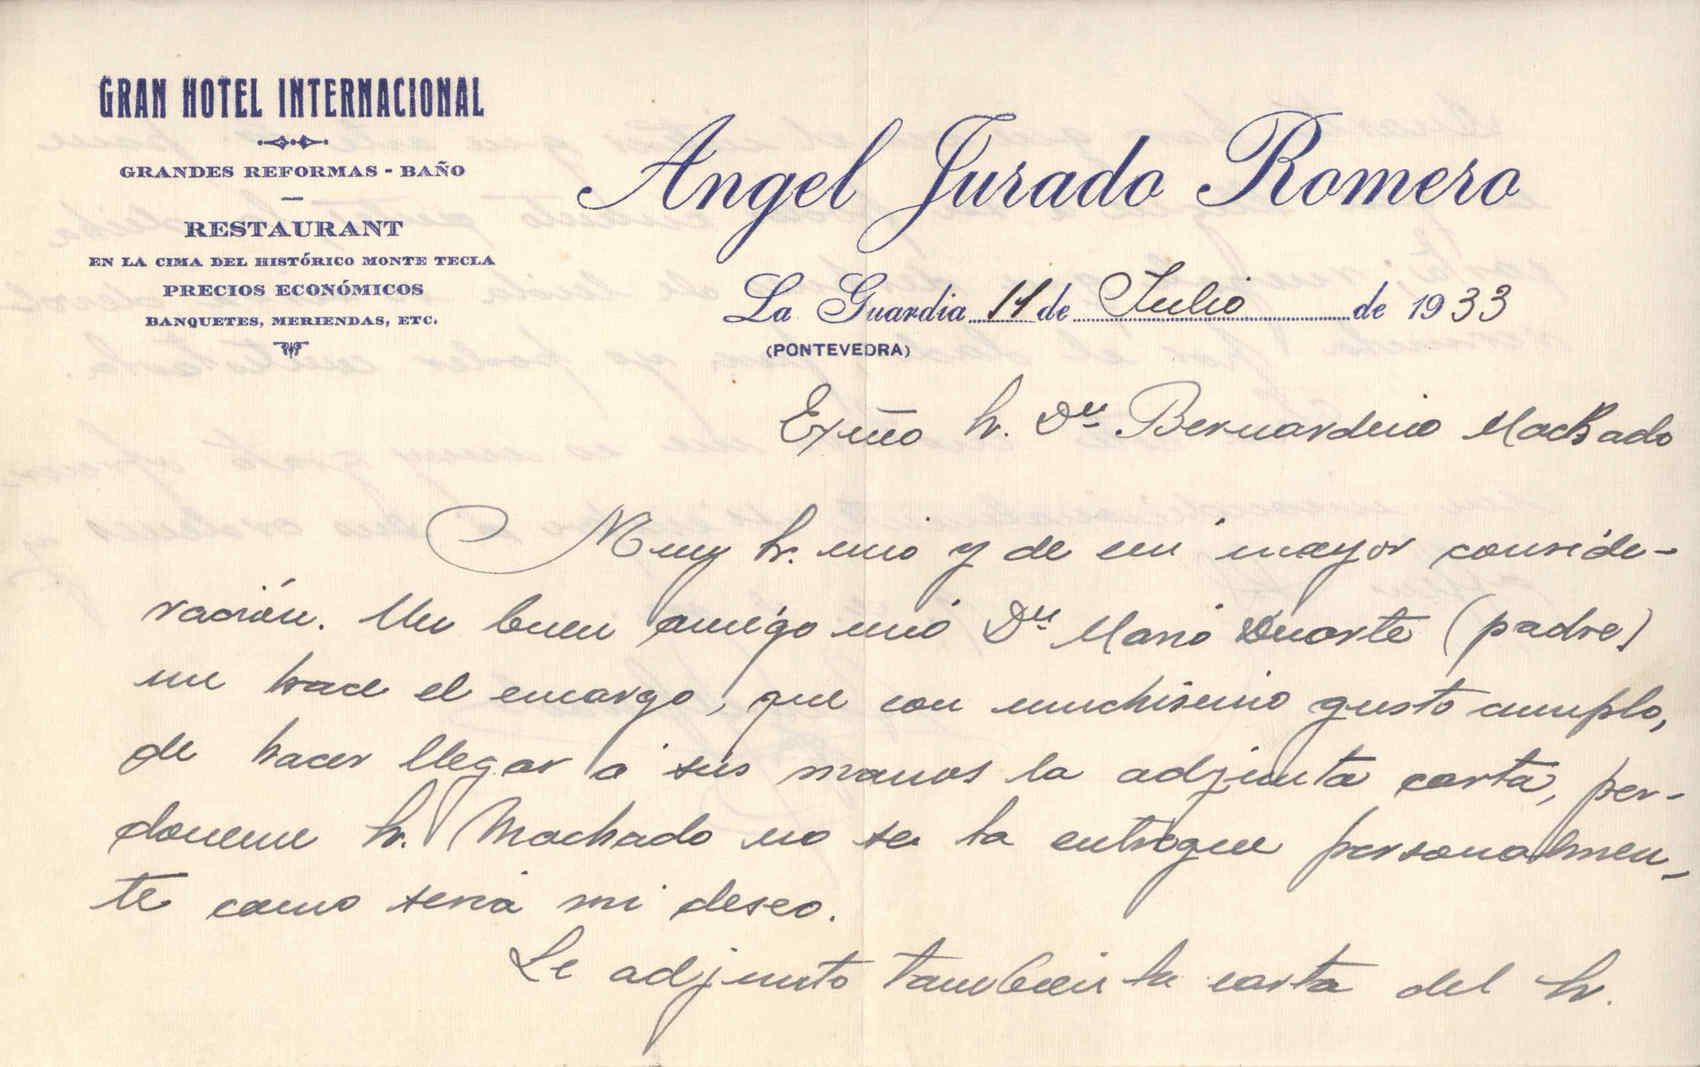 GRAN HOTEL INTERNACIONAL
GRANDES REFORMAS - BAÑO
RESTAURANT
EN LA CIMA DEL HISTÓRICO MONTE TECLA
PRECIOS ECONÓMICOS
BANQUETES, MERIENDAS, ETC.
Angel Jurado Romero
La Guardia 11 de Julio de 1933
(PONTEVEDRA)
Exmo Sr. Dn Bernardino Machado
Muy Sr. mio y de mi mayor conside-
ración. Un buen amigo mio Dn Mario Duarte (padre)
me hace el encargo, que con muchisimo gusto cumplo,
de hacer llegar á sus manos la adjunta carta, per-
doneme Sr. Machado no se la entregue personalmen-
te como seria mi deseo.
Le adjunto tambien la carta del Sr.